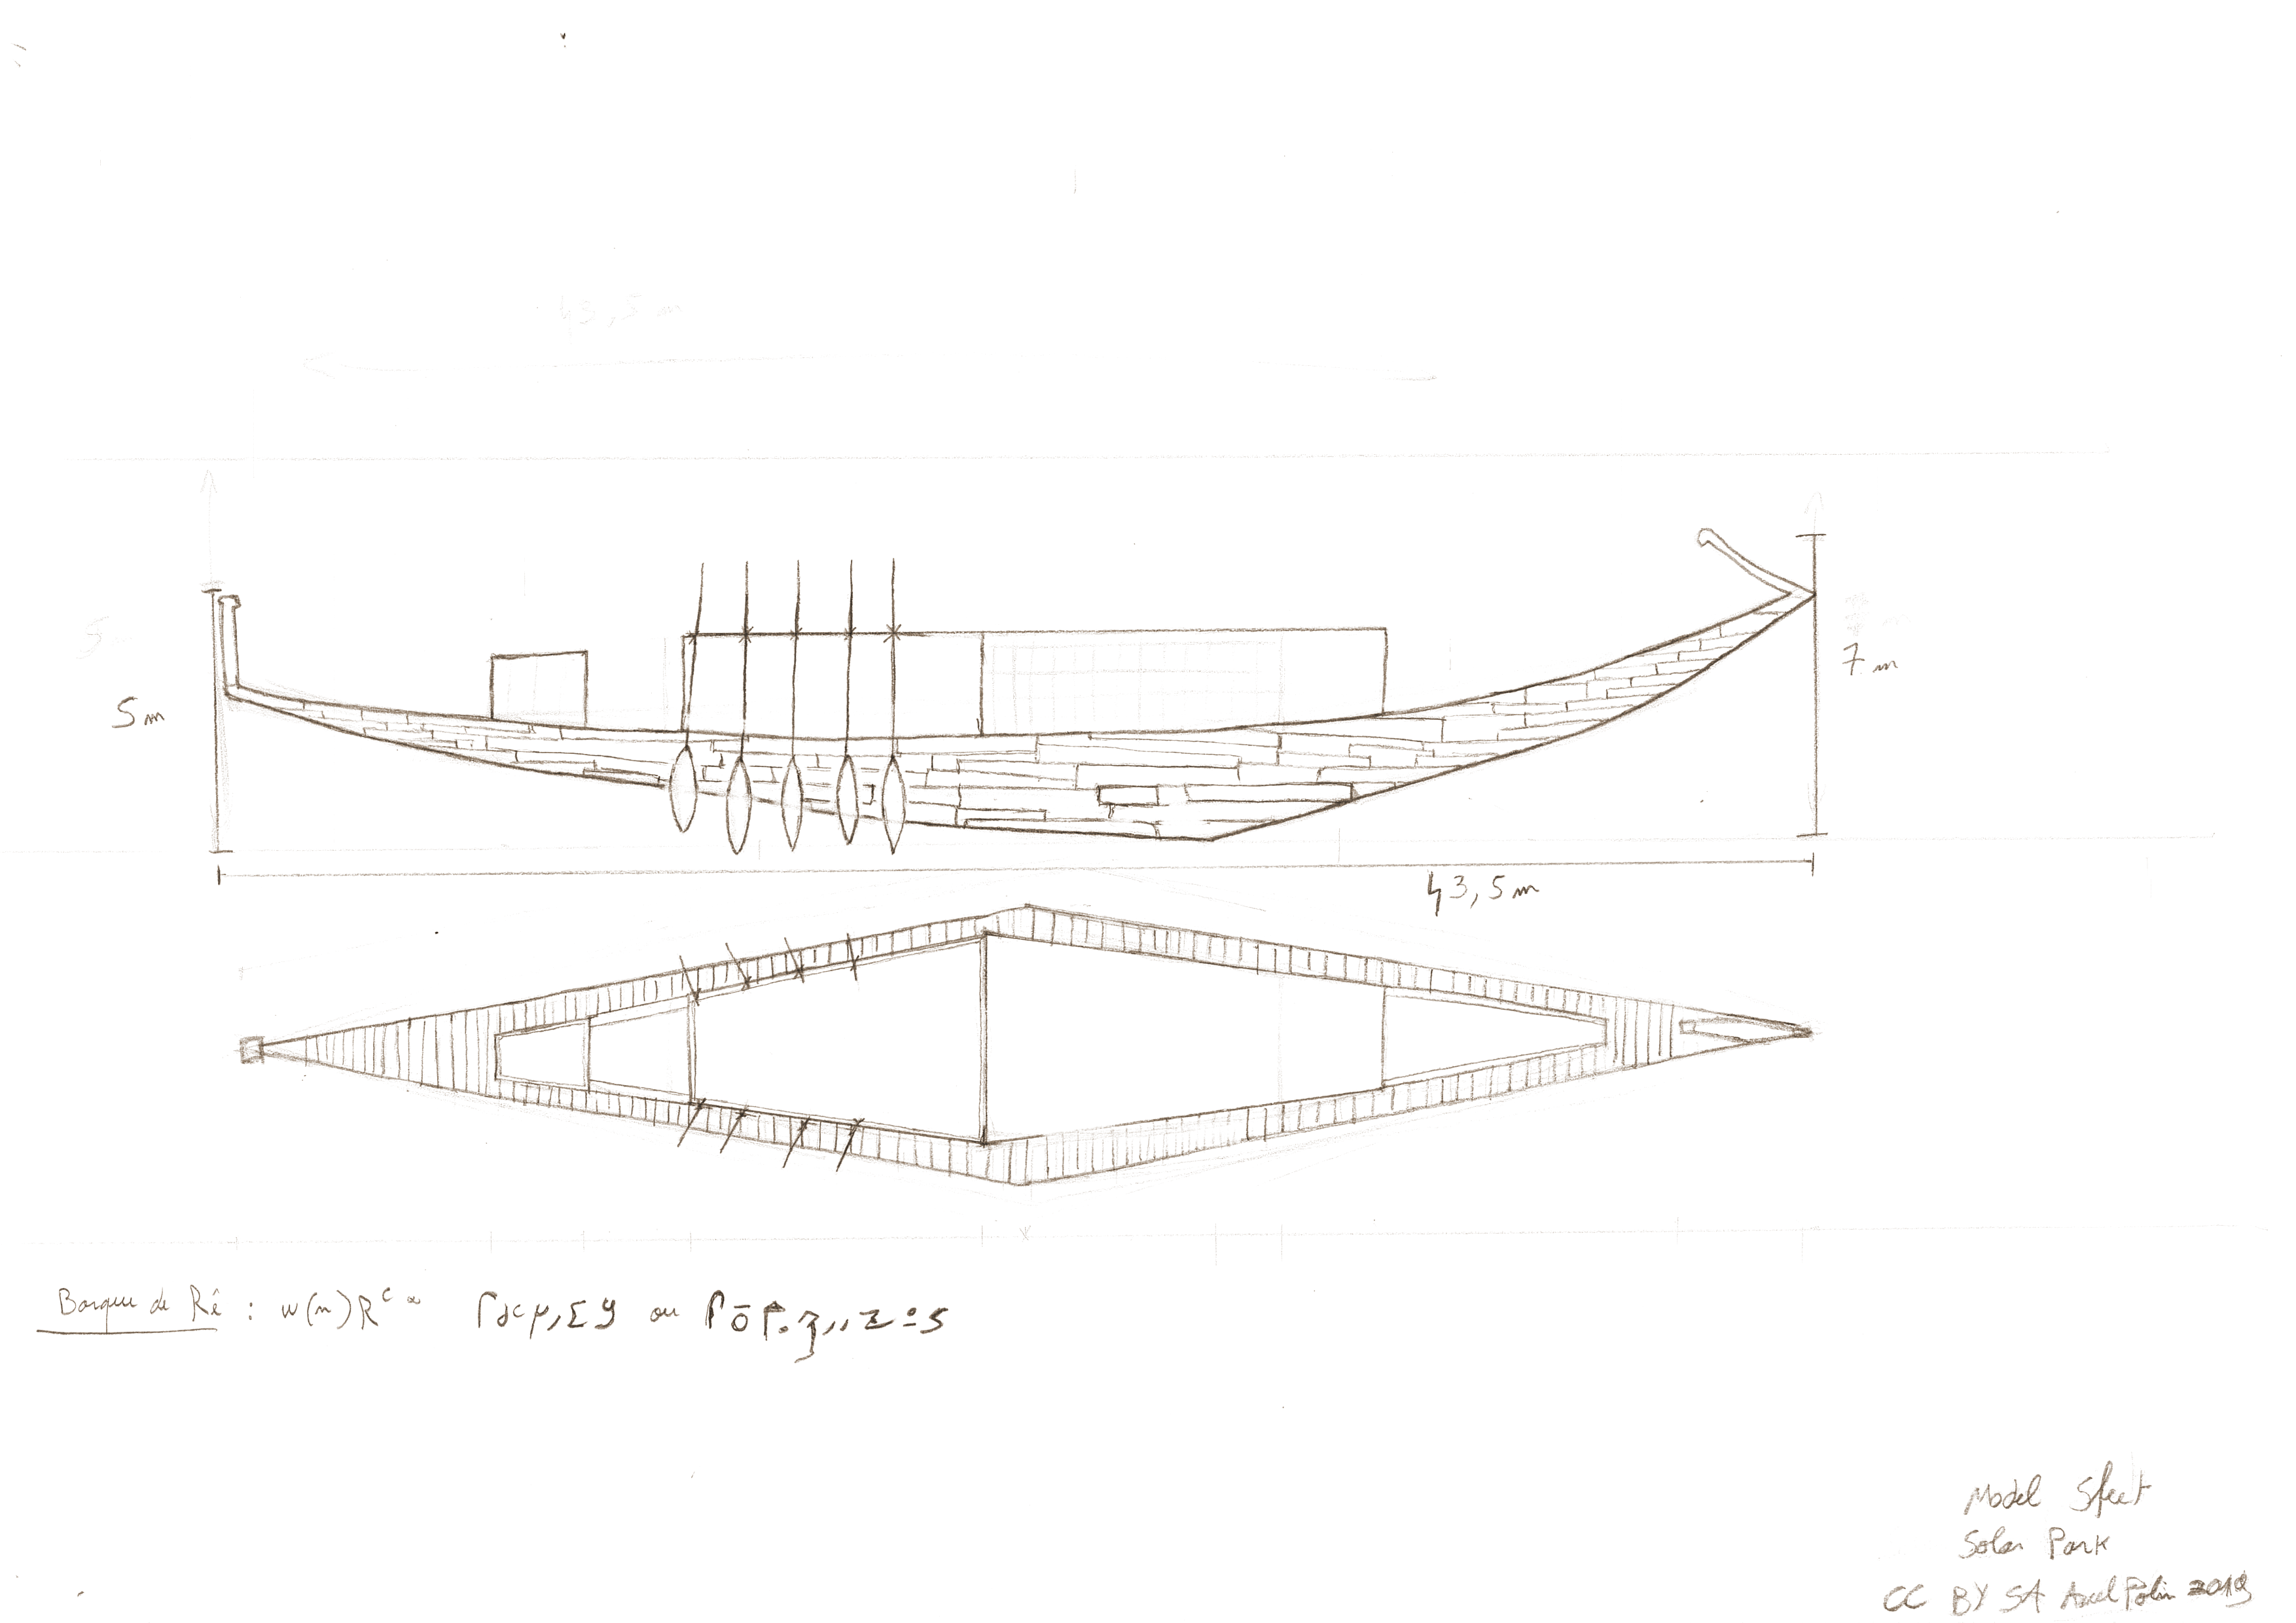 43,5 m
5
5 m
7 m
43,5 m
Barque de Rê : w(n)R ou
Model Sheet
Solar
CC BY SA Axel Polin 2019